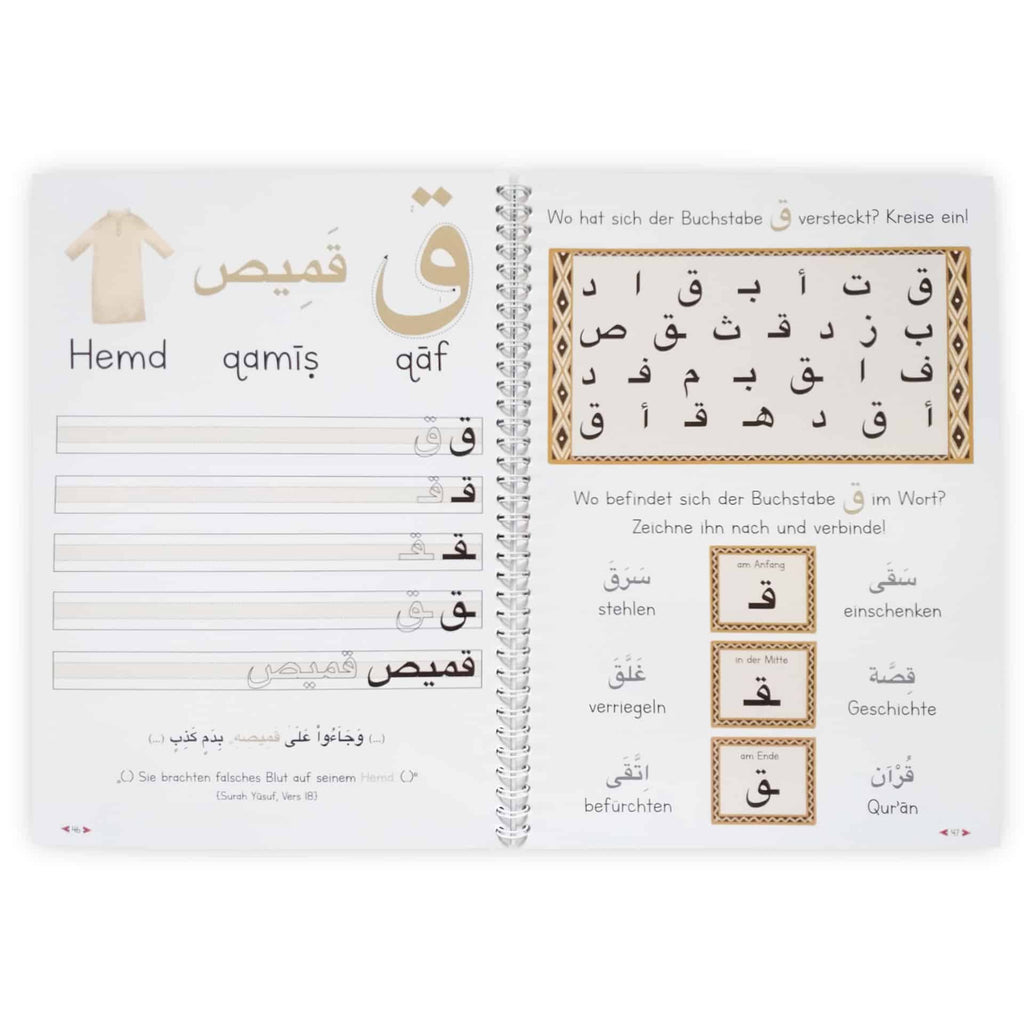 قَمِيص ق
Hemd qamīṣ qāf
ق ق
قـ قـ
ـقـ ـقـ
ـق ـق
قميص قميص
(...) وَجَاءُوا عَلَىٰ قَمِيصِهِ بِدَمٍ كَذِبٍ (...)
„(.) Sie brachten falsches Blut auf seinem Hemd (.)“
{Surah Yūsuf, Vers 18}
46
Wo hat sich der Buchstabe ق versteckt? Kreise ein!
ق ت أ بـ ق ا د
ب ز د قـ ث ـق ص
ف ا ـق بـ م فـ د
أ ق د هـ قـ أ ق
Wo befindet sich der Buchstabe ق im Wort?
Zeichne ihn nach und verbinde!
سَرَقَ
stehlen
غَلَّقَ
verriegeln
اِتَّقَى
befürchten
am Anfang
قـ
in der Mitte
ـقـ
am Ende
ـق
سَقَى
einschenken
قِصَّة
Geschichte
قُرْآن
Qur'ān
47